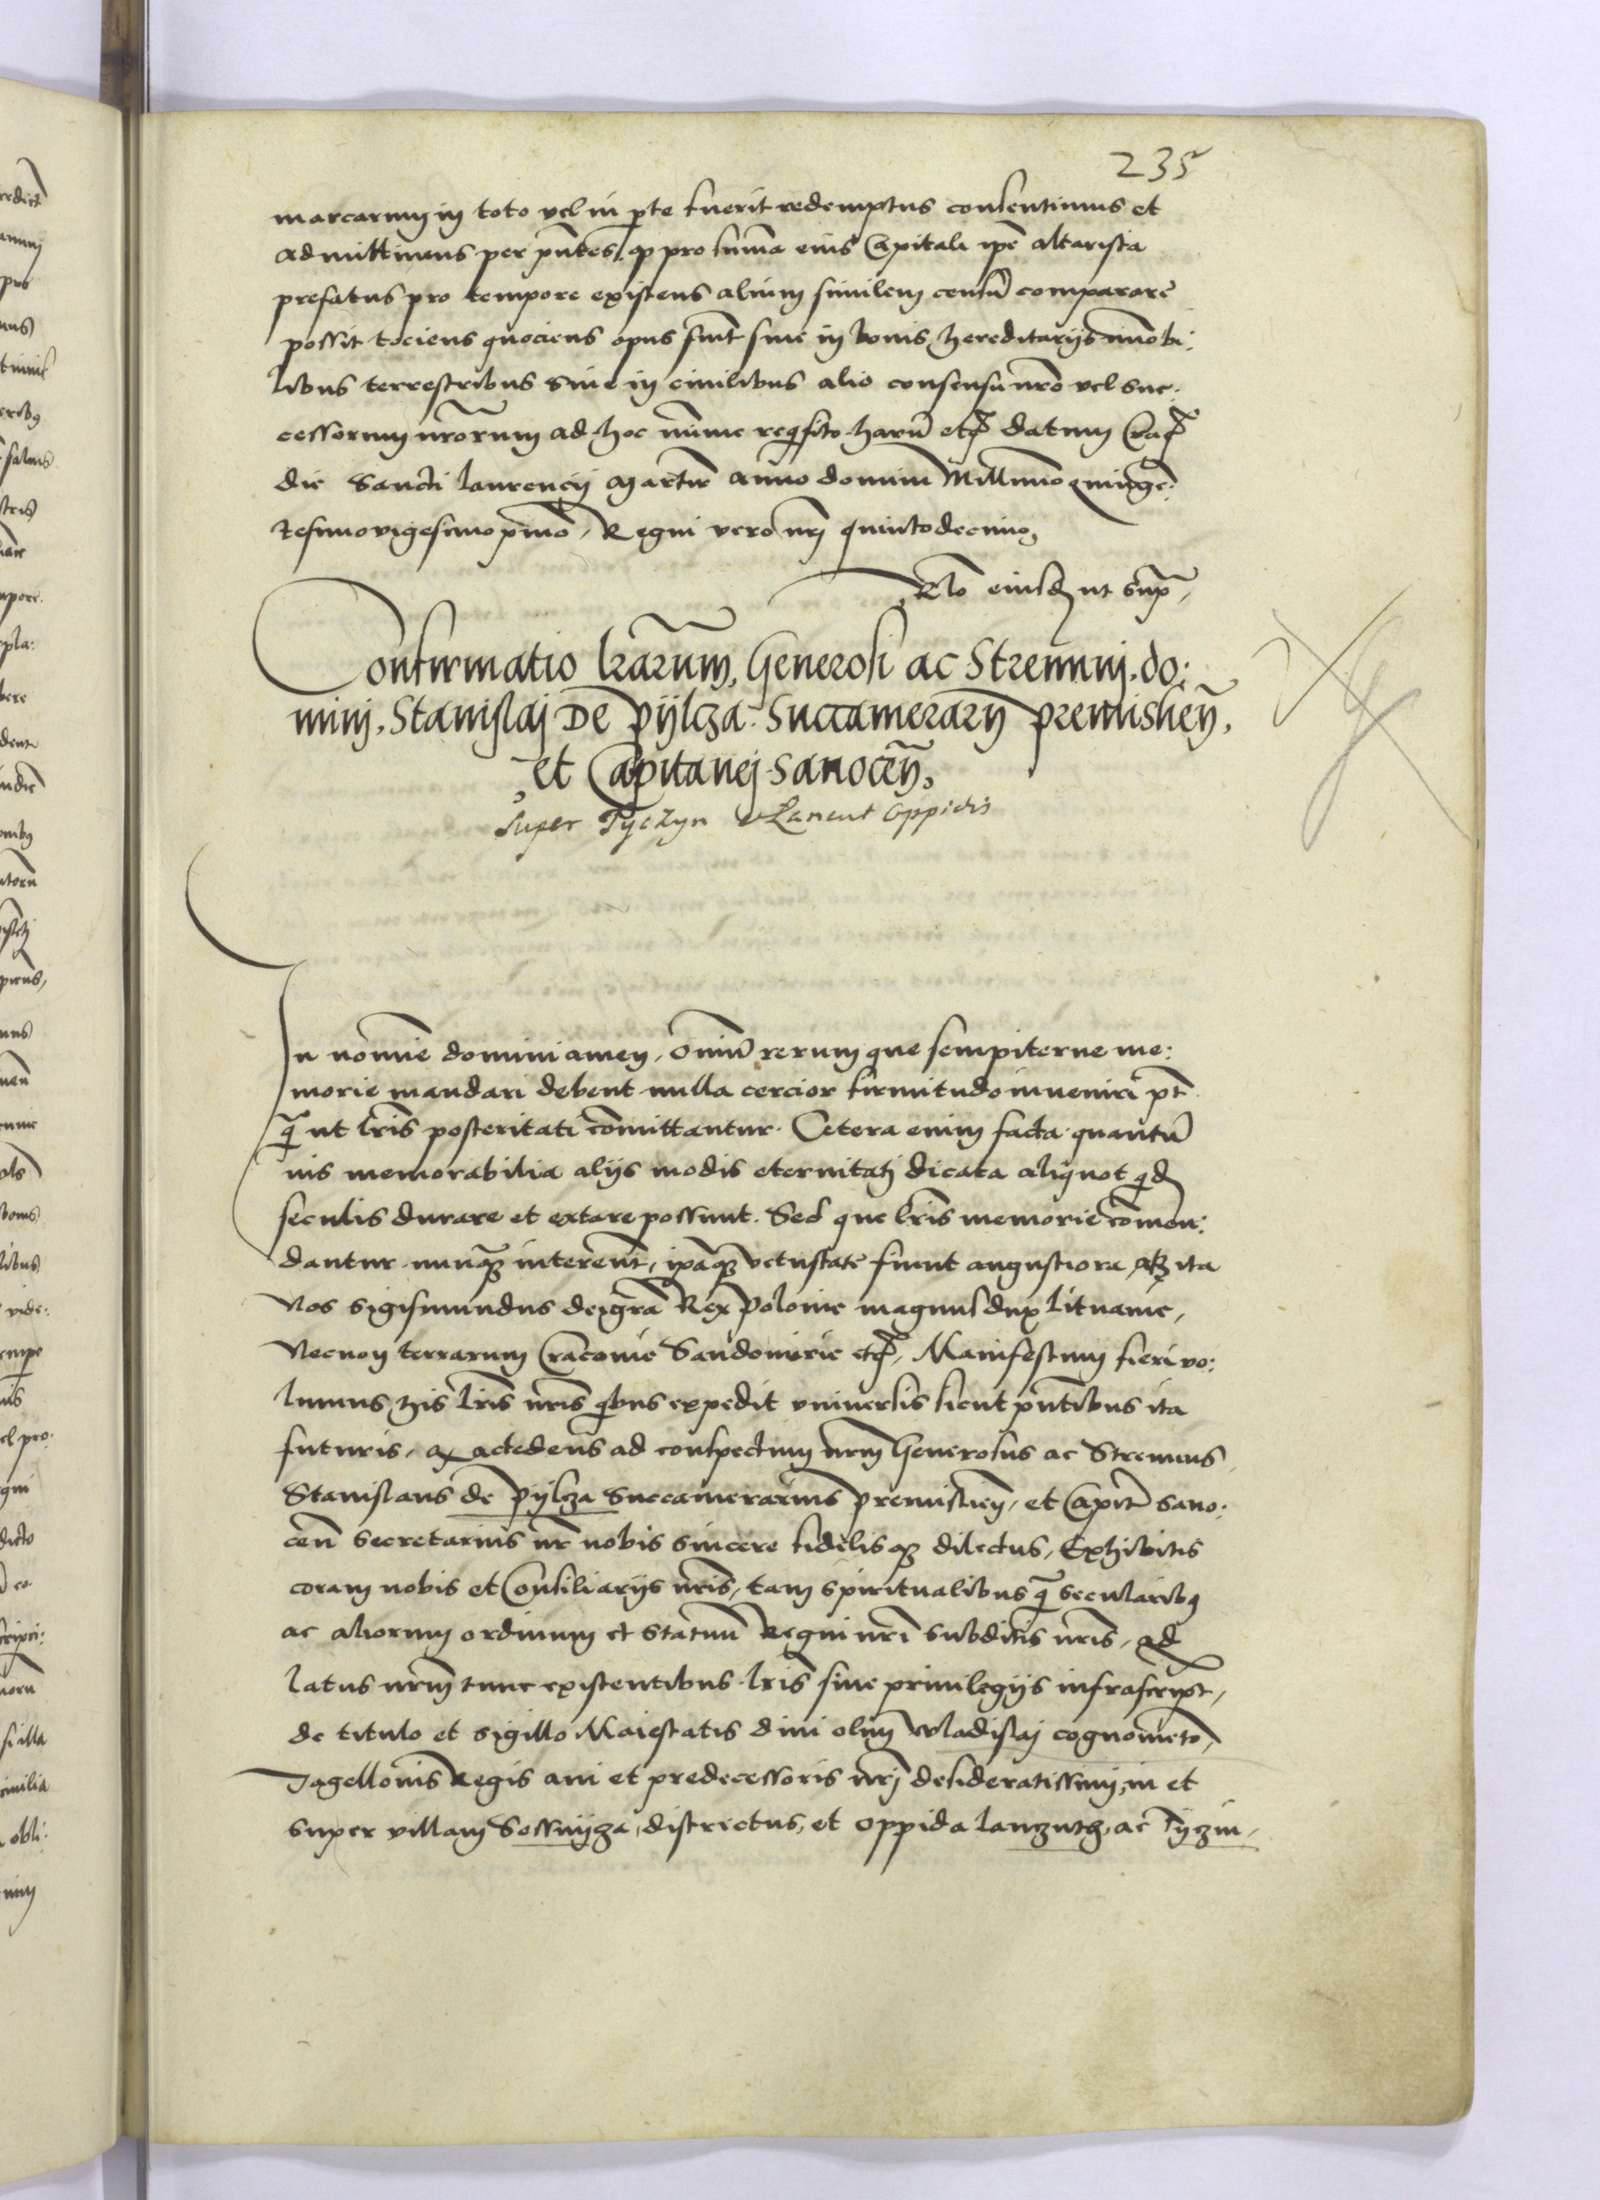 235
marcarum in toto vel in p̱te fuerit redemptus consentimus et
admittimus per p̄ntes, q̨ pro suma eius Capitali ip̄e altarista
prefatus pro tempore existens alium similem censū comparare
possit tociens quociens opus fuit siue in bonis hereditarijs imobi:
libus terrestribus siue in ciuilibus alio consensu nr̄o vel suc:
cessorum nr̄orum ad hoc minime reqsito. harū etc̨ datum Crac̨
die Sancti laurencij martir̄ Anno domini Millimo quinge:
tesimovigesimo p̄mo, Regni vero nr̄j quintodecimo,
Rlō eiusdē ut sup̄,
Confirmatio lr̄arum, Generosi ac Strenuij do:
minj, Stanislaj De Pijlcza Succamerarij premislien̄,
et Capitanej Sanoceñ,
super Tyczyn et Lancut Oppidis
In nomine domini amen, Omniū rerum que sempiterne me:
morie mandari debent nulla cercior firmitudo inueniri pt̄
q̄ ut lr̄is posteritati comittantur. Cetera enim facta quantū
uis memorabilia alijs modis eternitatj dicata aliquot qd̄
seculis durare et extare possunt. Sed que lr̄is memorie comen:
dantur nunq̄ intereunt, ip̄aq̨ vetustate fiunt augustiora, Atq̨ ita
Nos Sigismundus dei gr̄a Rex Polonie magnus dux Lituanie,
Necnon terrarum Cracouie Sandomirie etc̨, Manifestum fieri vo:
lumus his lr̄is nr̄is qbus expedit vniuersis sicut p̄ntibus ita
futuris, q̨ accedens ad conspectum nr̄m Generosus ac Strenuus
Stanislaus de Pijlcza Succamerarius Premislień, et Capit̄ Sano:
ceñ Secretarius nr̄ nobis sincere fidelisq̨ dilectus, Exhibitis
coram nobis et Consiliarijs nr̄is, tam spiritualibus q̄ secularibꝯ
ac aliorum ordinum et statuū Regni nr̄i subditis nr̄is, ad
latus nr̄m tunc existentibus lr̄is siue priuilegijs infrascript,
de titulo et sigillo Maiestatis diui olim Wladislaj cognomēto,
Jagellonis Regis aui et predecessoris nr̄j desideratissimj, in et
super villam Sossnijcza, districtus, et oppida lanczuth, ac Tijczin,